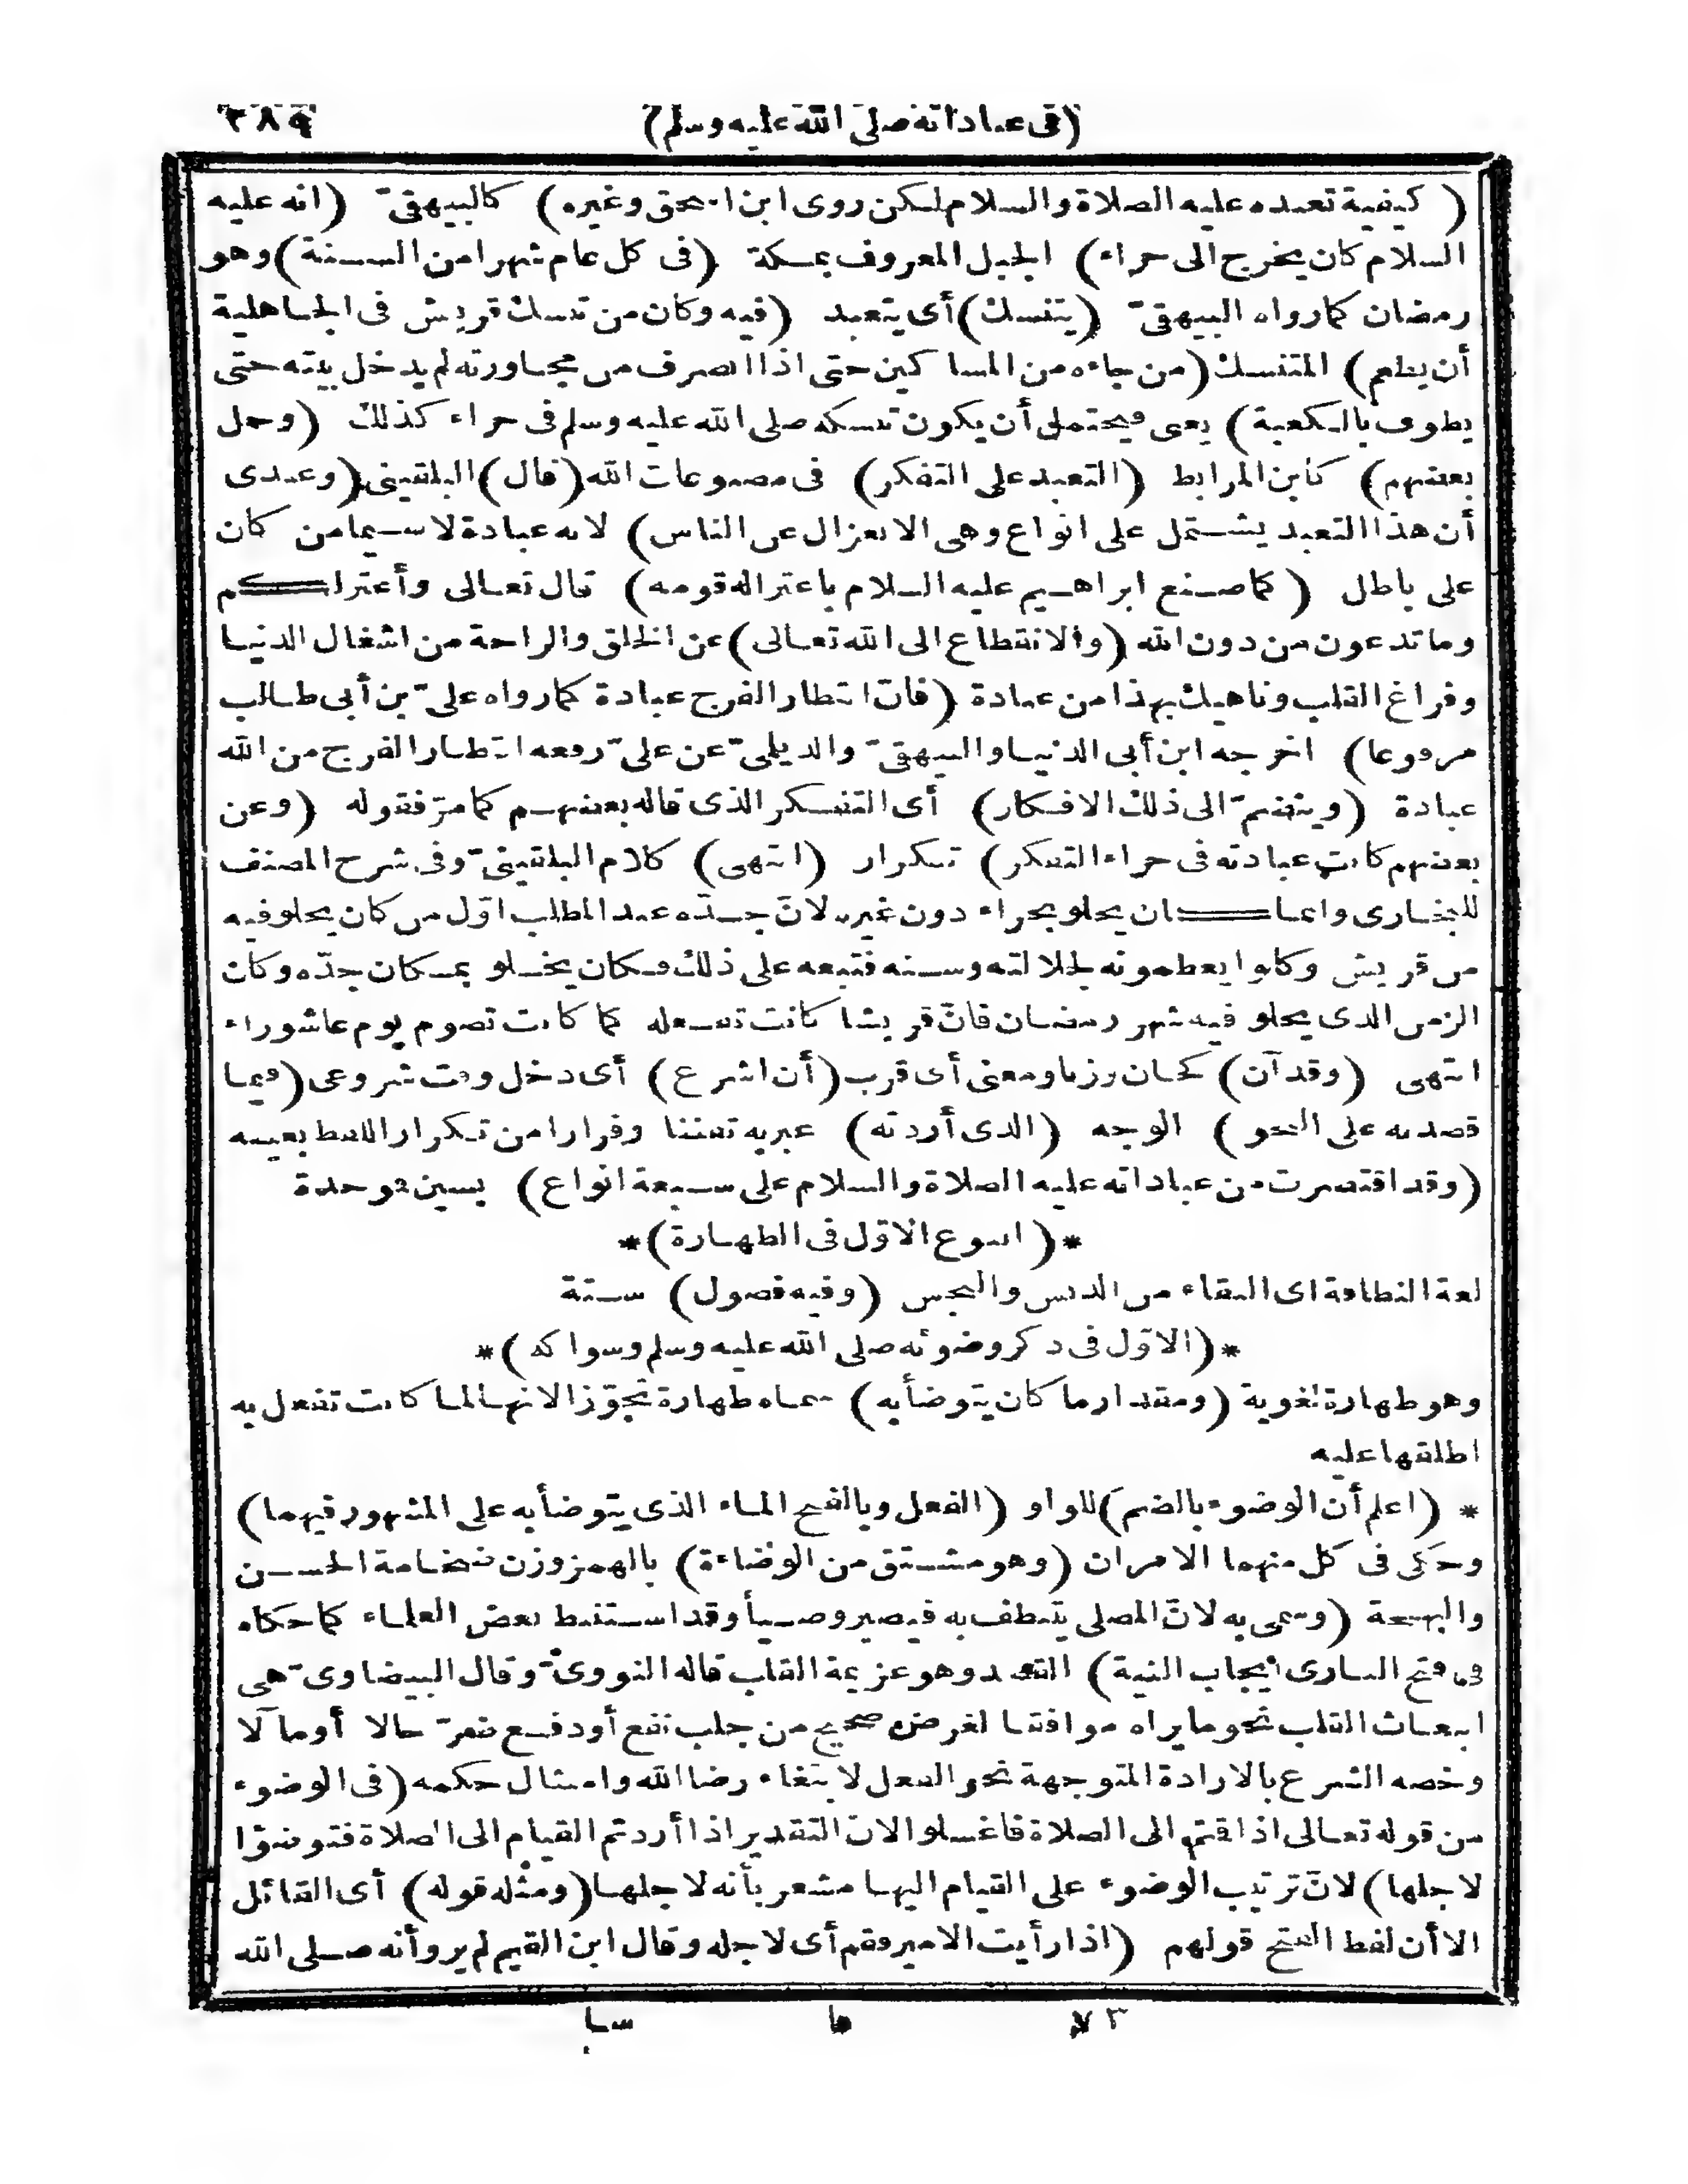 (فى عباداته صلى الله عليه وسلم) ٣٨٩
( كيفية تعبده عليه الصلاة والسلام لكن روى ابن اسحق وغيره) كالبيهقىّ (انه عليه
السلام كان يخرج الى حراء) الجبل المعروف بمكة (فى كل عام شهرا من السنة) وهو
رمضان كما رواه البيهقىّ (يتنسك) أى يتعبد (فيه وكان من تنسك قريش فى الجاهلية
أن يطعم) المتنسك (من جاءه من المساكين حتى اذا انصرف من مجاورته لم يدخل بيته حتى
يطوف بالكعبة) يعى فيحتمل أن يكون تنسكه صلى الله عليه وسلم فى حراء كذلك (وحمل
بعضهم) كابن المرابط (التعبد على التفكر) فى مصنوعات الله (قال) البلقينى (وعندى
أن هذا التعبد يشتمل على انواع وهى الانعزال عن الناس) لانه عبادة لا سيما من كان
على باطل (كما صنع ابراهيم عليه السلام باعتزاله قومه) قال تعالى وأعتزلكم
وما تدعون من دون الله (والانقطاع الى الله تعالى) عن الخلق والراحة من اشغال الدنيا
وفراغ القلب وناهيك بهذا من عبادة (فانّ انتظار الفرج عبادة كما رواه علىّ بن أبى طالب
مرفوعا) اخرجه ابن أبى الدنيا والبيهقىّ والديلمىّ عن علىّ رفعه انتظار الفرج من الله
عبادة (وينضمّ الى ذلك الافكار) أى التفكر الذى قاله بعضهم كما مرّ فقوله (وعن
بعضهم كانت عبادته فى حراء التفكر) تكرار (انتهى) كلام البلقينىّ وفى شرح المصنف
للبخارى وانما كان يخلو بحراء دون غيره لانّ جدّه عبد المطلب اوّل من كان يخلو فيه
من قريش وكانوا يعظمونه لجلالته وسنه فتبعه على ذلك فكان يخلو بمكان جدّه وكان
الزمن الذى يخلو فيه شهر رمضان فانّ قريشا كانت تفعله كما كانت تصوم يوم عاشوراء
انتهى (وقد آن) كحان وزنا ومعنى أى قرب (أن اشرع) أى دخل وقت شروعى (فيما
قصدته على النحو) الوجه (الذى أردته) عبر به تفننا وفرارا من تكرار اللفظ بعينه
(وقد اقتصرت من عباداته عليه الصلاة والسلام على سبعة انواع) بسين فوحدة
*(النوع الاوّل فى الطهارة)*
لغة النظافة اى النقاء من الدنس والنجس (وفيه فصول) ستة
*(الاوّل فى ذكر وضوئه صلى الله عليه وسلم وسواكه)*
وهو طهارة لغوية (ومقدار ما كان يتوضأ به) سماه طهارة تجوّزا لانها لما كانت تفعل به
اطلقها عليه
* (اعلم أن الوضوء بالضم) للواو (الفعل وبالفتح الماء الذى يتوضأ به على المشهور فيهما)
وحكى فى كل منهما الامران (وهو مشتق من الوضاءة) بالهمز وزن ضخامة الحسن
والبهجة (وسمى به لانّ المصلى يتنظف به فيصير وضيأ وقد استنبط بعض العلماء كما حكاه
فى فتح البارى ايجاب النية) القصد وهو عزيمة القلب قاله النووىّ وقال البيضاوىّ هى
انبعاث القلب نحو ما يراه موافقا لغرض صحيح من جلب نفع أو دفع ضرّ حالا أو مآلا
وخصه الشرع بالارادة المتوجهة نحو الفعل لابتغاء رضا الله وامتثال حكمه (فى الوضوء
من قوله تعالى اذا قمتم الى الصلاة فاغسلوا لانّ التقدير اذا أردتم القيام الى الصلاة فتوضؤا
لاجلها) لانّ ترتيب الوضوء على القيام اليها مشعر بأنه لاجلها (ومثله قوله) أى القائل
الا أن لفظ الفتح قولهم (اذا رأيت الامير فقم أى لاجله وقال ابن القيم لم يرو أنه صلى الله
سا